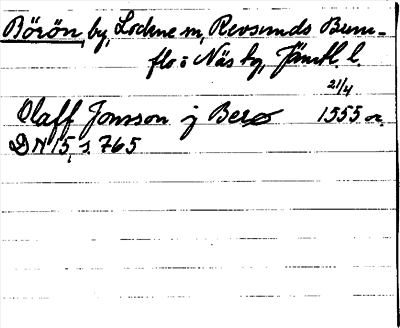 Börön, by, Lockne sn, Revsunds Brun-
flo o Näs tg, Jämtl. l.
21/4
Olaff Jonsson j Berø 1555 or.
DN 15, s. 765